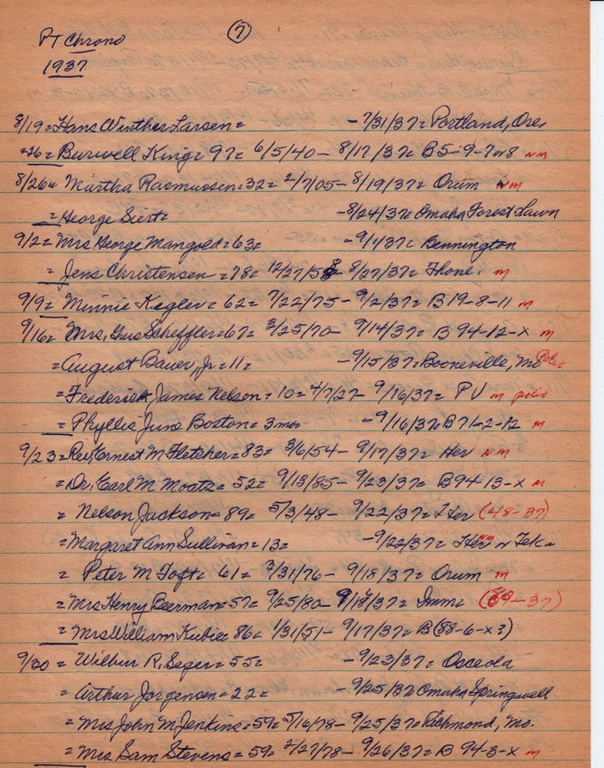 PT Chrono (7)
1937
8/19 = Hans Winther Larsen = - 7/31/37 = Portland, Ore.
"26 = Burwell King = 97 = 6/5/40 - 8/17/37 = B5-9-7 or 8 NM
8/26 = Martha Rasmussen = 32 = 2/7/05 - 8/19/37 = Orum NM
= George Siert = - 8/24/37 = Omaha Forest Lawn
9/2 = Mrs George Mangold = 63 = - 9/1/37 = Bennington
= Jens Christensen = 78 = 12/27/58 - 8/27/37 = M
9/9 = Minnie Kegler = 62 = 7/22/75 - 9/2/37 = B19-8-11 M
9/16 = Mrs. Gus Scheffler = 67 = 2/25/70 - 9/14/37 = B 94-12-X M
= August Bauer, Jr = 11 = - 9/15/37 = Booneville, Mo Polio
= Frederick James Nelson = 10 = 4/7/27 - 9/16/37 = PV M polio
= Phyllis June Boston = 3 mos - 9/16/37 = B71-2-12 M
9/23 = Rev. Ernest M Fletcher = 83 = 3/6/54 - 9/17/37 = Her NM
= Dr. Earl M Moats = 52 = 9/18/85 - 9/23/37 = B94-13-X M
= Nelson Jackson = 89 = 5/3/48 - 9/22/37 = Her (48-37)
= Margaret Ann Sullivan = 13 = - 9/22/37 = Her NM or Tek =
= Peter M Toft = 61 = 3/31/76 - 9/18/37 = Orum M
= Mrs Henry Beerman = 57 = 9/25/80 - 9/18/37 = Imm = (80-37)
= Mrs William Kubie = 86 = 1/31/51 - 9/17/37 = B(88-6-X?)
9/30 = Wilbur R. Seger = 55 = - 9/23/37 = Osceola
= Arthur Jorgensen = 22 = - 9/25/37 = Omaha Springwell
= Mrs John M Jenkins = 59 = 5/16/78 - 9/25/37 = Richmond, Mo.
= Mrs Sam Stevens = 59 = 2/27/78 - 9/26/37 = B 94-3-X M